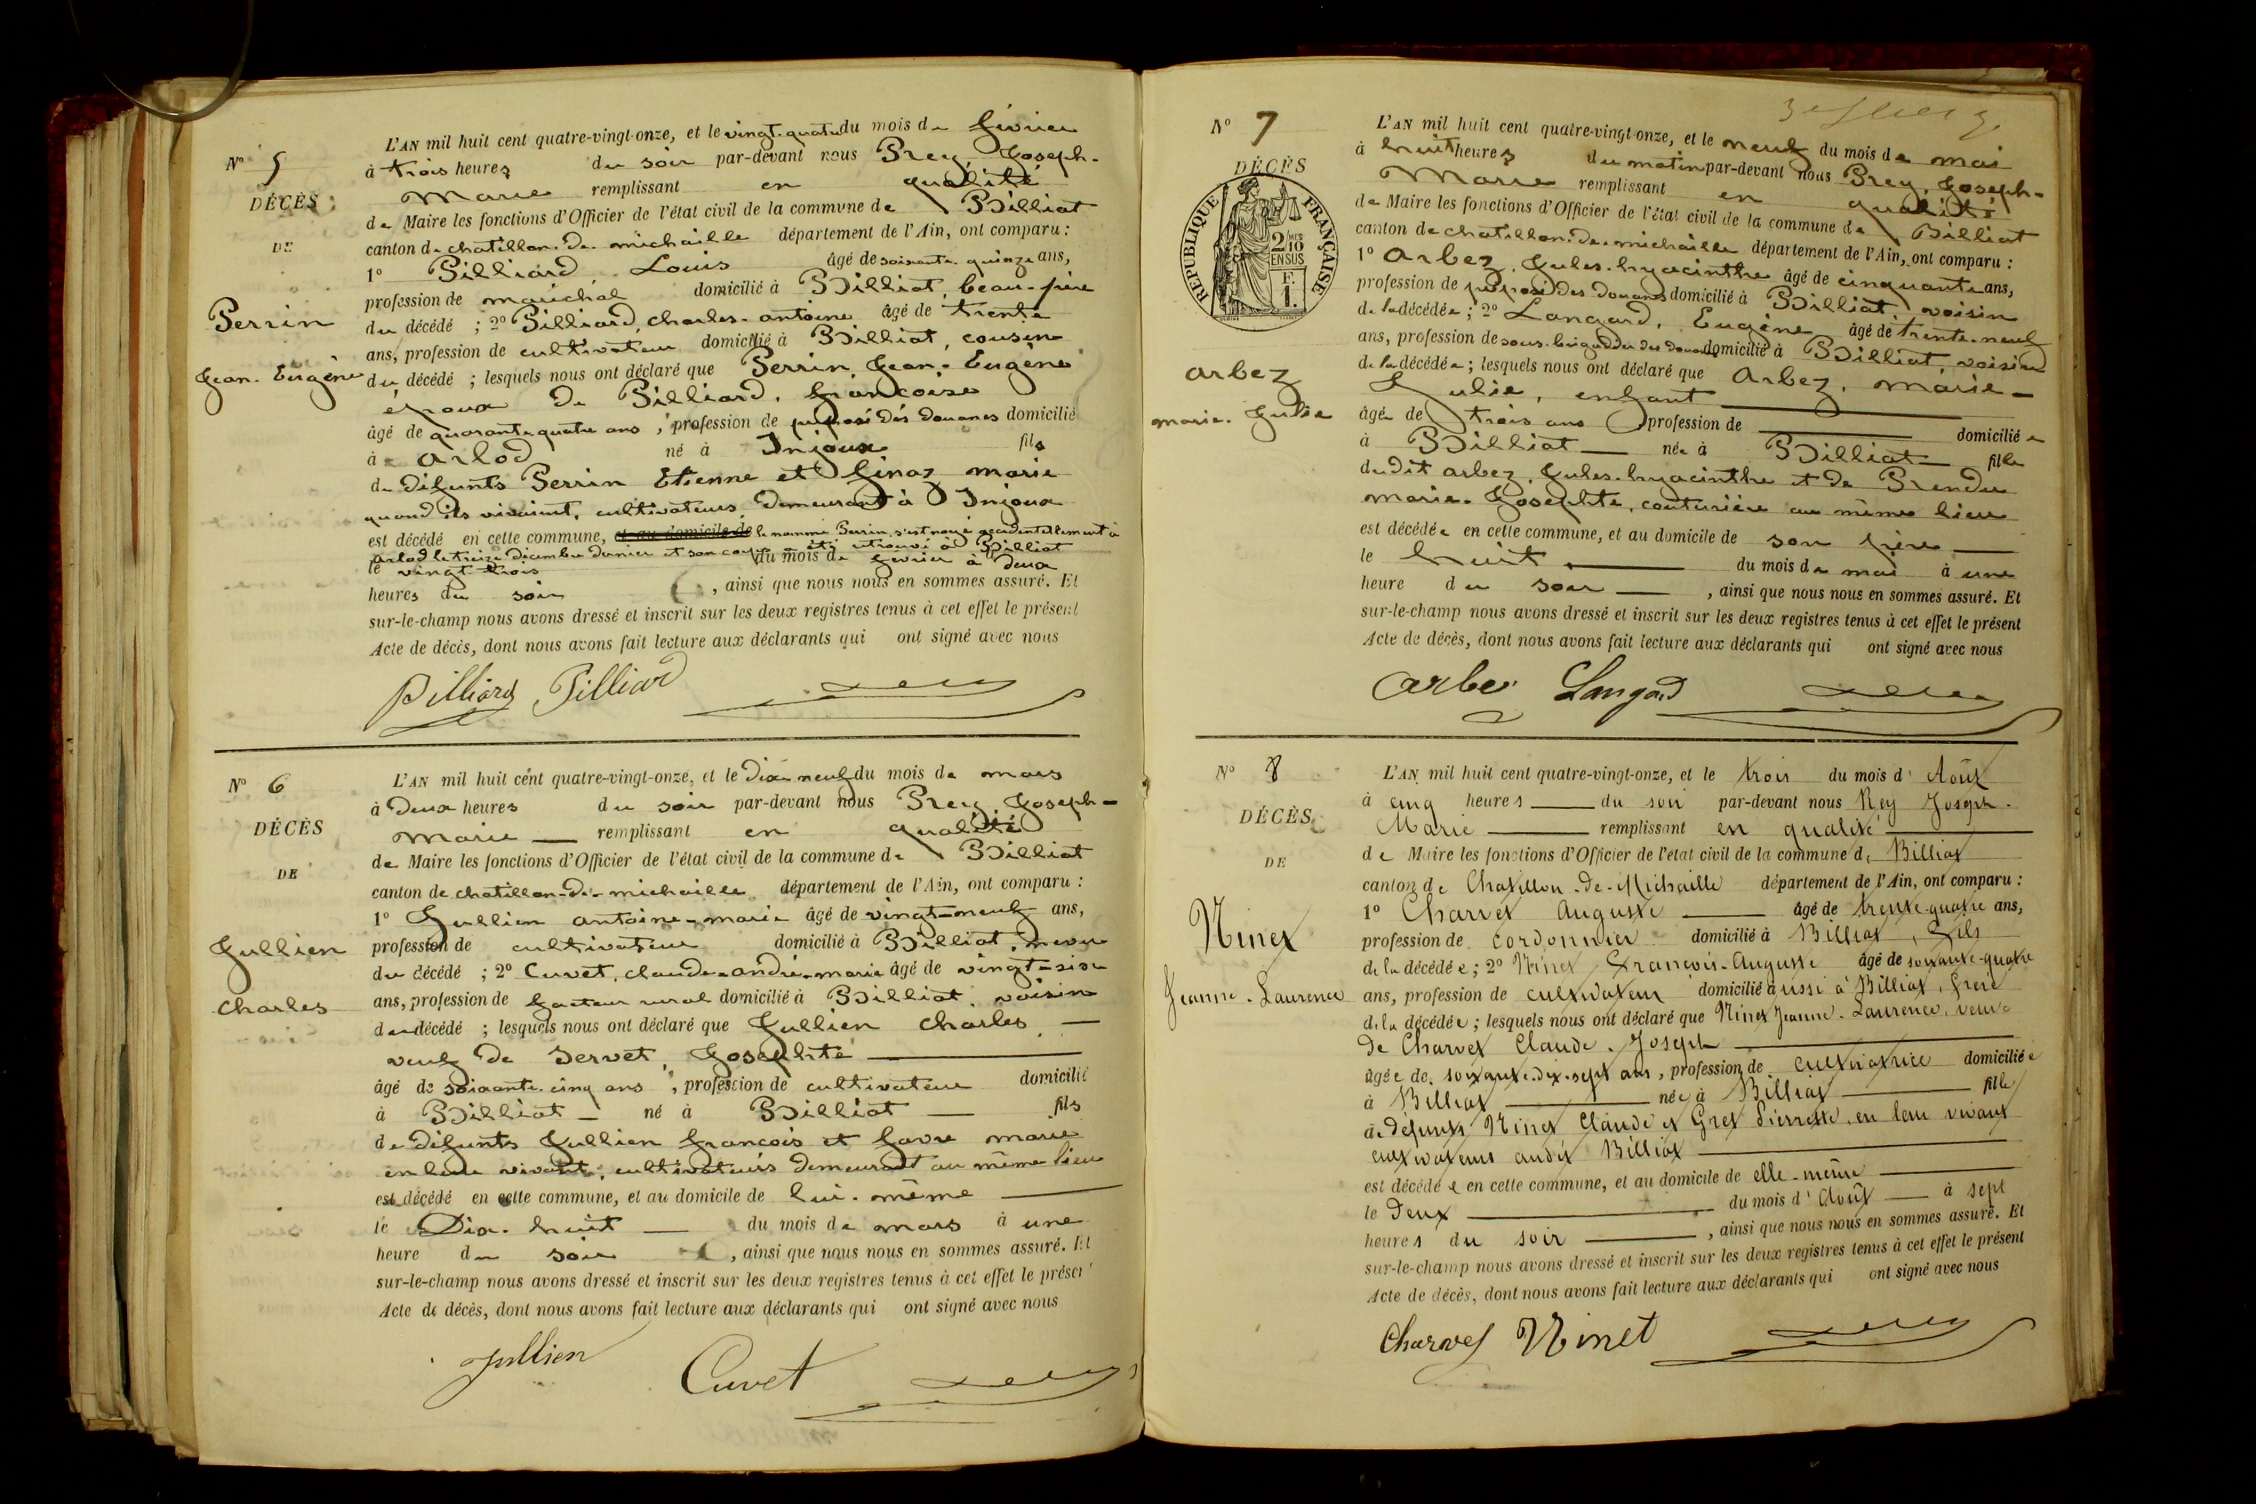 N° 5
DÉCÈS
DE
Perrin
Jean-Eugène
L'AN mil huit cent quatre-vingt-onze, et le vingt-quatre du mois de février
à trois heures du soir par-devant nous Rey, Joseph-
Marie remplissant en qualité
de Maire les fonctions d'Officier de l'état civil de la commune de Billiat
canton de chatillon-de-michaille département de l'Ain, ont comparu :
1° Pilliard Louis âgé de soixante-quinze ans,
profession de maréchal domicilié à Billiat, beau-père
du décédé ; 2° Pilliard, charles-antoine âgé de trente
ans, profession de cultivateur domicilié à Billiat, cousin
du décédé ; lesquels nous ont déclaré que Perrin, Jean-Eugène
époux de Pilliard, françoise
âgé de quarante quatre ans, profession de préposé des douanes domicilié
à arlod né à Injoux fils
de défunts Perrin Etienne et Ginaz marie
quand ils vivaient, cultivateurs demeurant à Injoux
est décédé en cette commune, et au domicile de le nommé Perrin s'est noyé accidentellement à
arlod le treize décembre dernier et son corps a été retrouvé à Billiat
le vingt-trois du mois de février à deux
heures du soir , ainsi que nous nous en sommes assuré. Et
sur-le-champ nous avons dressé et inscrit sur les deux registres tenus à cet effet le présent
Acte de décès, dont nous avons fait lecture aux déclarants qui ont signé avec nous
Pilliard Pilliard
N° 6
DÉCÈS
DE
Jullien
Charles
L'AN mil huit cent quatre-vingt-onze, et le dix-neuf du mois de mars
à deux heures du soir par-devant nous Rey, Joseph-
Marie remplissant en qualité
de Maire les fonctions d'Officier de l'état civil de la commune de Billiat
canton de chatillon-de-michaille département de l'Ain, ont comparu :
1° Jullien antoine-marie âgé de vingt-neuf ans,
profession de cultivateur domicilié à Billiat, neveu
du décédé ; 2° Cuvet, claude-andré-marie âgé de vingt-six
ans, profession de facteur rural domicilié à Billiat, voisin
du décédé ; lesquels nous ont déclaré que Jullien charles,
veuf de Servet, Josephte
âgé de soixante-cinq ans, profession de cultivateur domicilié
à Billiat né à Billiat fils
de défunts Jullien françois et favre marie
en leur vivant, cultivateurs demeurant au même lieu
est décédé en cette commune, et au domicile de lui-même
le Dix-huit du mois de mars à une
heure du soir , ainsi que nous nous en sommes assuré. Et
sur-le-champ nous avons dressé et inscrit sur les deux registres tenus à cet effet le présent
Acte de décès, dont nous avons fait lecture aux déclarants qui ont signé avec nous
Jullien Cuvet
N° 7
DÉCÈS
RÉPUBLIQUE FRANÇAISE
2/10 MES
EN SUS
F.
1.
arbez
marie-Julie
L'AN mil huit cent quatre-vingt-onze, et le neuf du mois de mai
à huit heures du matin par-devant nous Rey, Joseph-
Marie remplissant en qualité
de Maire les fonctions d'Officier de l'état civil de la commune de Billiat
canton de chatillon-de-michaille département de l'Ain, ont comparu :
1° Arbez, Jules-hyacinthe âgé de cinquante ans,
profession de préposé des douanes domicilié à Billiat, voisin
de la décédée ; 2° Langard, Eugène âgé de trente-neuf
ans, profession de sous-brigadier des douanes domicilié à Billiat, voisin
de la décédée ; lesquels nous ont déclaré que Arbez, marie-
Julie, enfant
âgée de trois ans profession de domiciliée
à Billiat née à Billiat fille
du dit arbez, Jules-hyacinthe et de Prendu
marie-Josephte, couturière au même lieu
est décédée en cette commune, et au domicile de son père
le huit du mois de mai à une
heure du soir , ainsi que nous nous en sommes assuré. Et
sur-le-champ nous avons dressé et inscrit sur les deux registres tenus à cet effet le présent
Acte de décès, dont nous avons fait lecture aux déclarants qui ont signé avec nous
arbez Langard
N° 8
DÉCÈS
DE
Ninet
Jeanne-Laurence
L'AN mil huit cent quatre-vingt-onze, et le trois du mois d'Août
à cinq heures du soir par-devant nous Rey Joseph-
Marie remplissant en qualité
de Maire les fonctions d'Officier de l'état civil de la commune de Billiat
canton de Chatillon-de-Michaille département de l'Ain, ont comparu :
1° Charvet Auguste âgé de trente-quatre ans,
profession de cordonnier domicilié à Billiat, fils
de la décédée ; 2° Ninet, François-Auguste âgé de soixante-quatre
ans, profession de cultivateur domicilié aussi à Billiat, frère
de la décédée ; lesquels nous ont déclaré que Ninet Jeanne-Laurence, veuve
de Charvet Claude-Joseph
âgée de soixante-dix-sept ans, profession de cultivatrice domiciliée
à Billiat née à Billiat fille
de défunts Ninet Claude et Gret Pierrette, en leur vivant
cultivateurs audit Billiat
est décédée en cette commune, et au domicile de elle-même
le deux du mois d'Août à sept
heures du soir , ainsi que nous nous en sommes assuré. Et
sur-le-champ nous avons dressé et inscrit sur les deux registres tenus à cet effet le présent
Acte de décès, dont nous avons fait lecture aux déclarants qui ont signé avec nous
Charvet Ninet